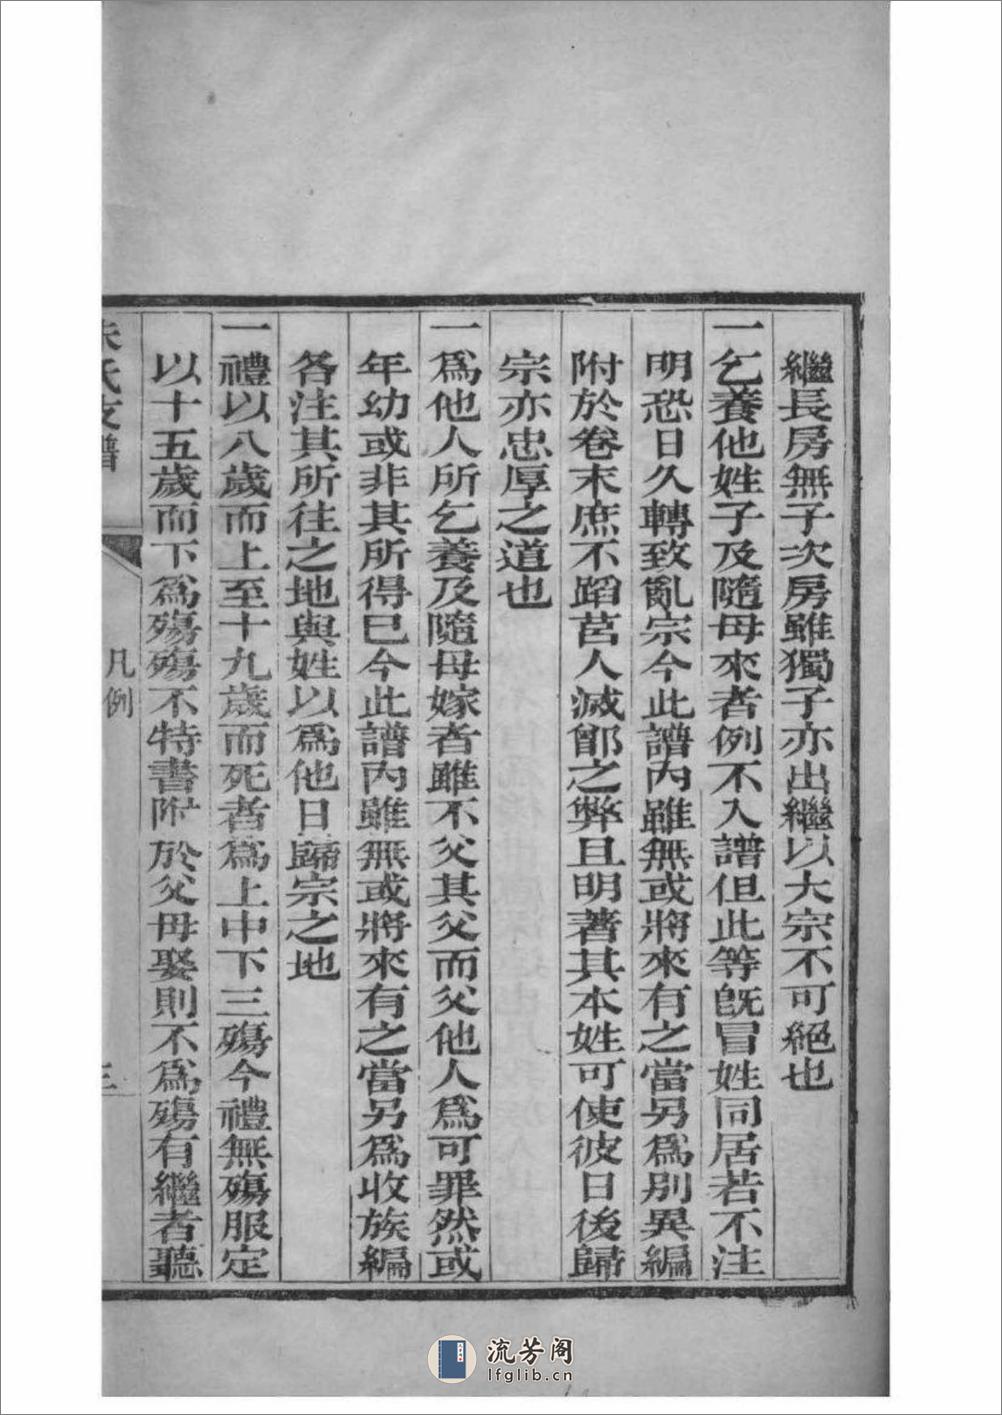 繼長房無子次房雖獨子亦出繼以大宗不可絕也
一乞養他姓子及隨母來者例不入譜但此等旣冒姓同居若不注
明恐日久轉致亂宗今此譜內雖無或將來有之當另爲別異編
附於卷末庶不蹈莒人滅鄫之弊且明著其本姓可使彼日後歸
宗亦忠厚之道也
一爲他人所乞養及隨母嫁者雖不父其父而父他人爲可罪然或
年幼或非其所得已今此譜內雖無或將來有之當另爲收族編
各注其所往之地與姓以爲他日歸宗之地
一禮以八歲而上至十九歲而死者爲上中下三殤今禮無殤服定
以十五歲而下爲殤殤不特書附於父母娶則不爲殤有繼者聽
朱氏支譜
凡例
三
流芳阁
lfglib.cn